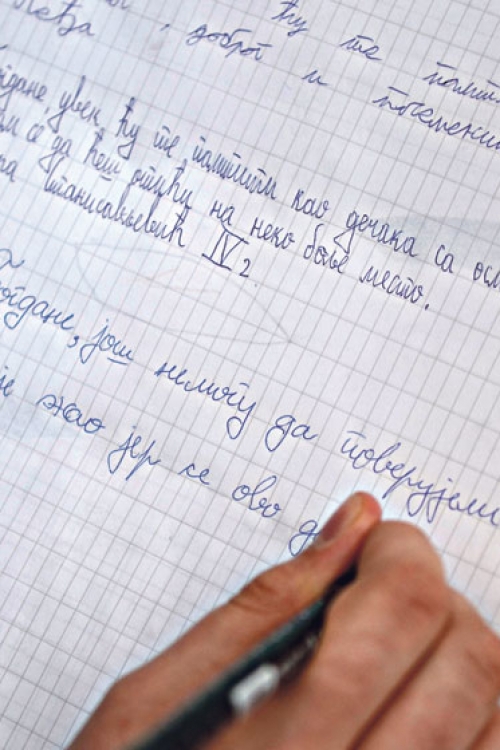 ћу те
, доброг и поеменит
увек ћу те памтити као дечака са осм
се да ћеш отићи на неко боље место.
на Станисављевић IV₂
још немогу да поверујем
је жао јер се ово д